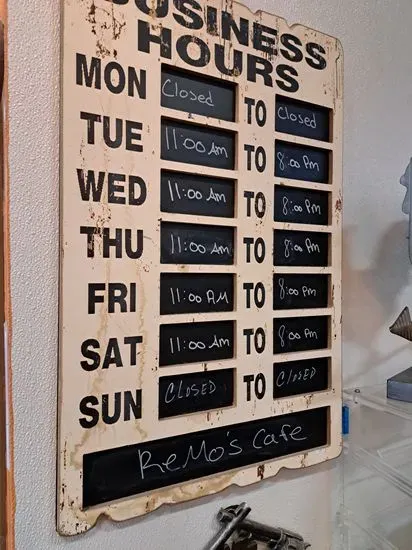 BUSINESS
HOURS
MON Closed TO Closed
TUE 11:00 Am TO 8:00 Pm
WED 11:00 Am TO 8:00 Pm
THU 11:00 Am TO 8:00 Pm
FRI 11:00 AM TO 8:00 Pm
SAT 11:00 Am TO 8:00 Pm
SUN CLOSED TO ClOSED
ReMo's Cafe